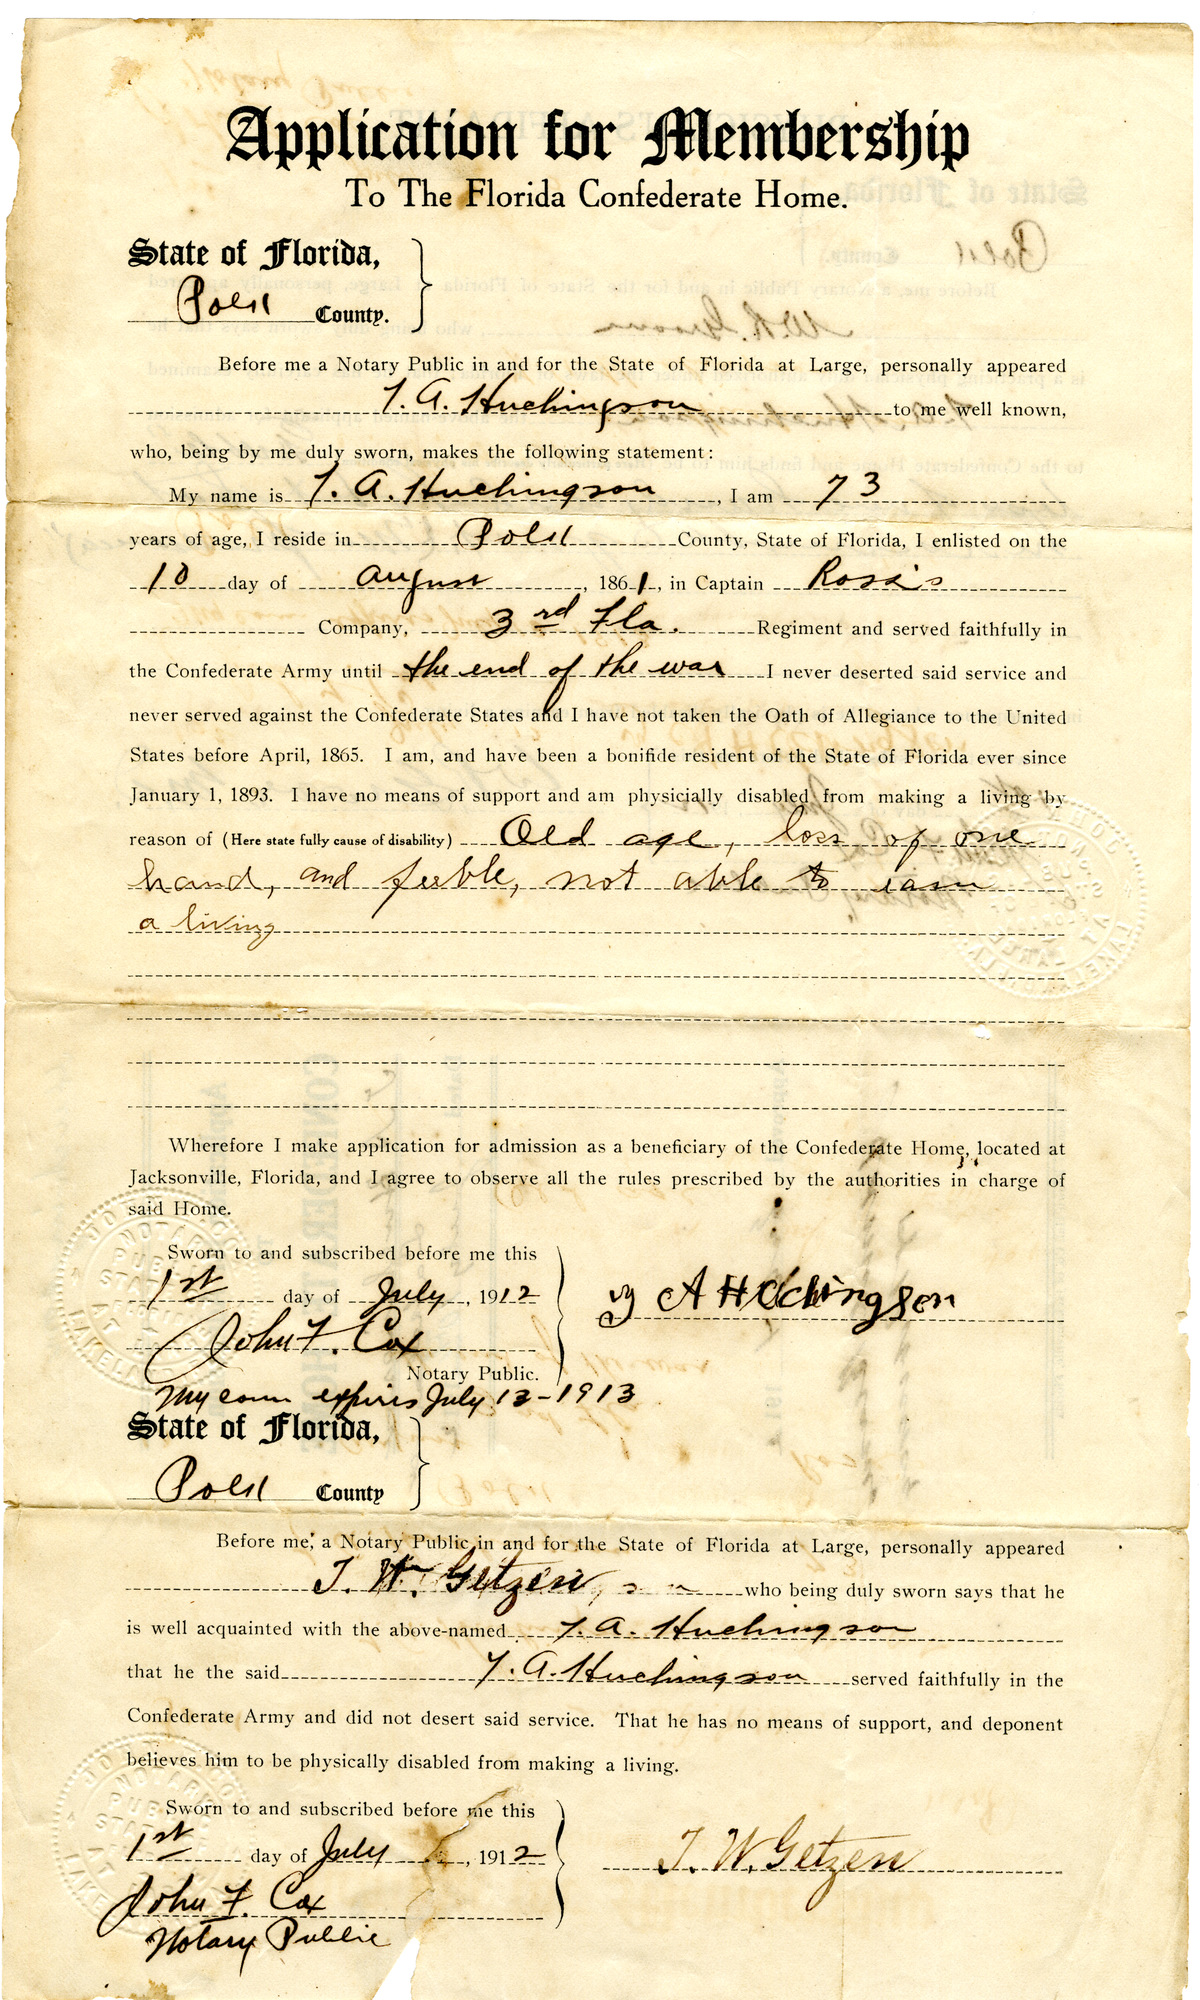 Application for Membership
To The Florida Confederate Home.
State of Florida,
Polk County.
Before me a Notary Public in and for the State of Florida at Large, personally appeared
T. A. Huchingson to me well known,
who, being by me duly sworn, makes the following statement:
My name is T. A. Huchingson, I am 73
years of age, I reside in Polk County, State of Florida, I enlisted on the
10 day of August, 1861, in Captain Ross's
Company, 3rd Fla. Regiment and served faithfully in
the Confederate Army until the end of the war I never deserted said service and
never served against the Confederate States and I have not taken the Oath of Allegiance to the United
States before April, 1865. I am, and have been a bonifide resident of the State of Florida ever since
January 1, 1893. I have no means of support and am physicially disabled from making a living by
reason of (Here state fully cause of disability) Old age, loss of one
hand, and feeble, not able to earn
a living
Wherefore I make application for admission as a beneficiary of the Confederate Home, located at
Jacksonville, Florida, and I agree to observe all the rules prescribed by the authorities in charge of
said Home.
Sworn to and subscribed before me this
1st day of July, 1912
T A Huchingson
John F. Cox
Notary Public.
My com expires July 13-1913
State of Florida,
Polk County
Before me, a Notary Public in and for the State of Florida at Large, personally appeared
T. W. Getzen, who being duly sworn says that he
is well acquainted with the above-named T. A. Huchingson
that he the said T. A. Huchingson served faithfully in the
Confederate Army and did not desert said service. That he has no means of support, and deponent
believes him to be physically disabled from making a living.
Sworn to and subscribed before me this
1st day of July, 1912
T. W. Getzen
John F. Cox
Notary Public